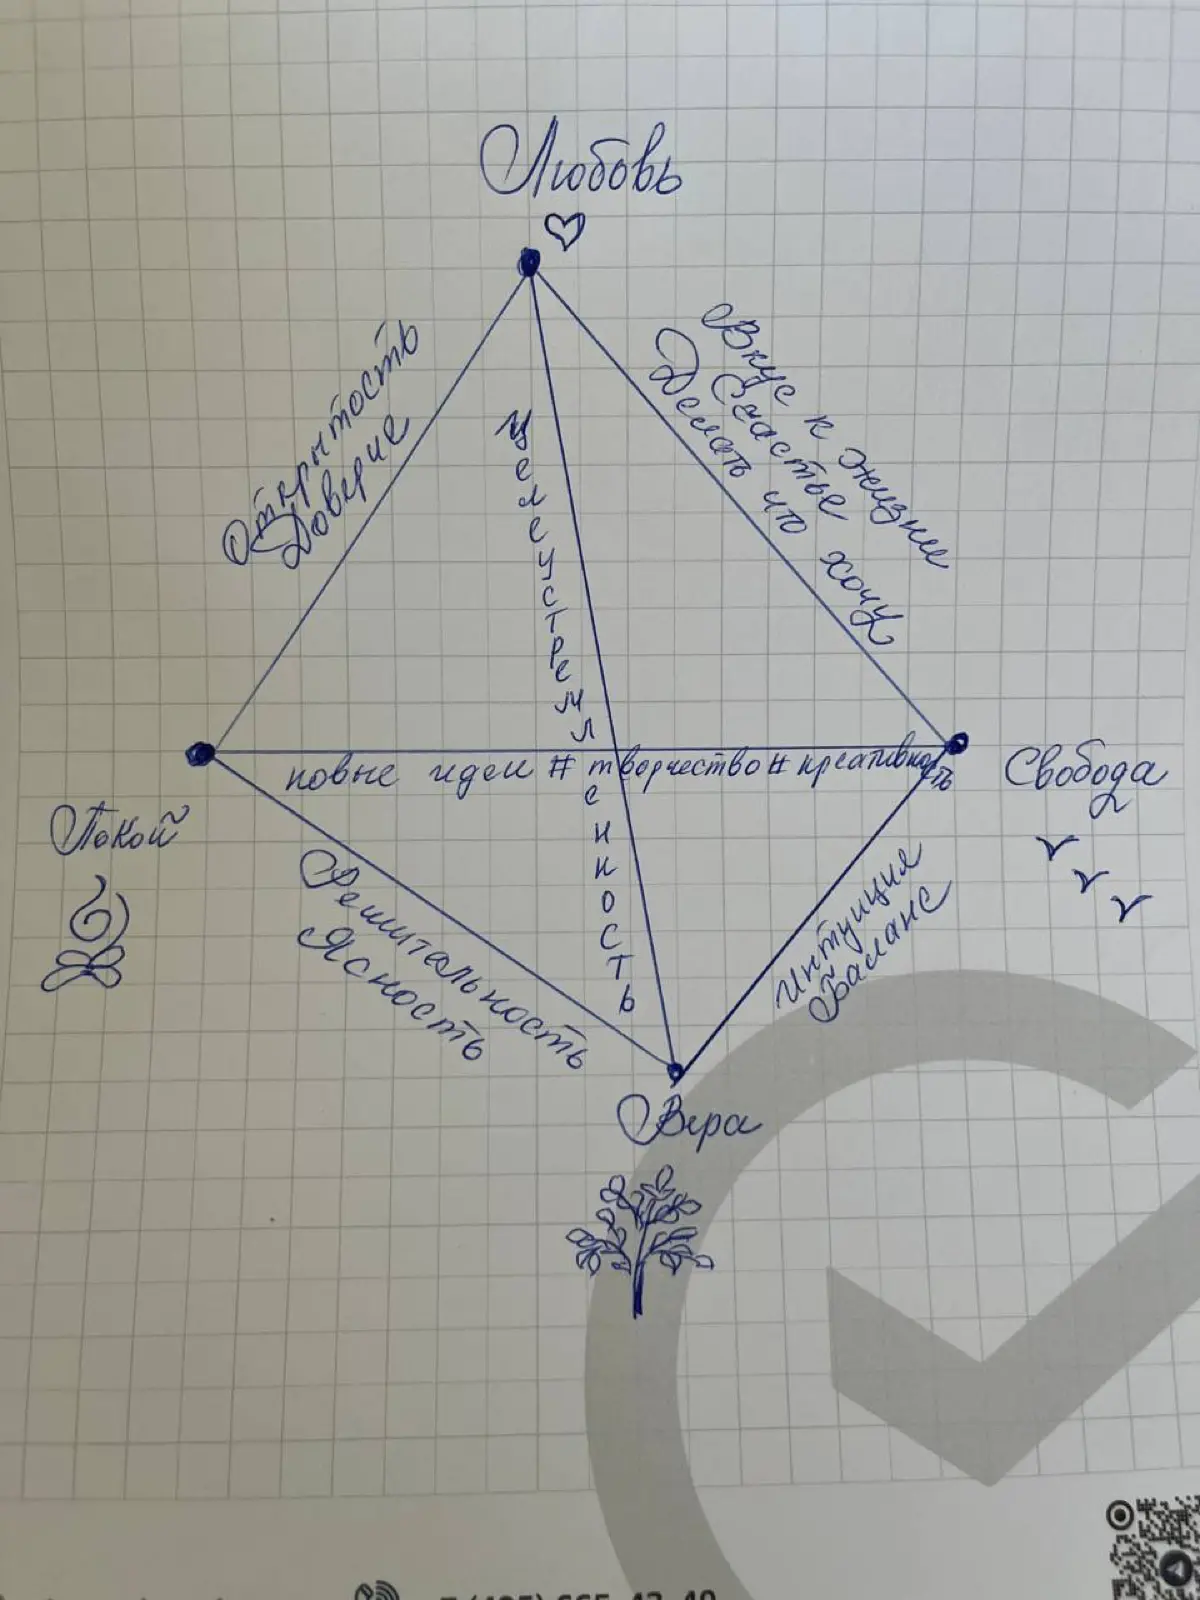 Любовь
Открытость
Доверие
Вкус к жизни
Счастье
Делать что хочу
Целеустремленность
новые идеи # творчество # креативность
Свобода
Покой
Решитальность
Ясность
Интуиция
Баланс
Вера